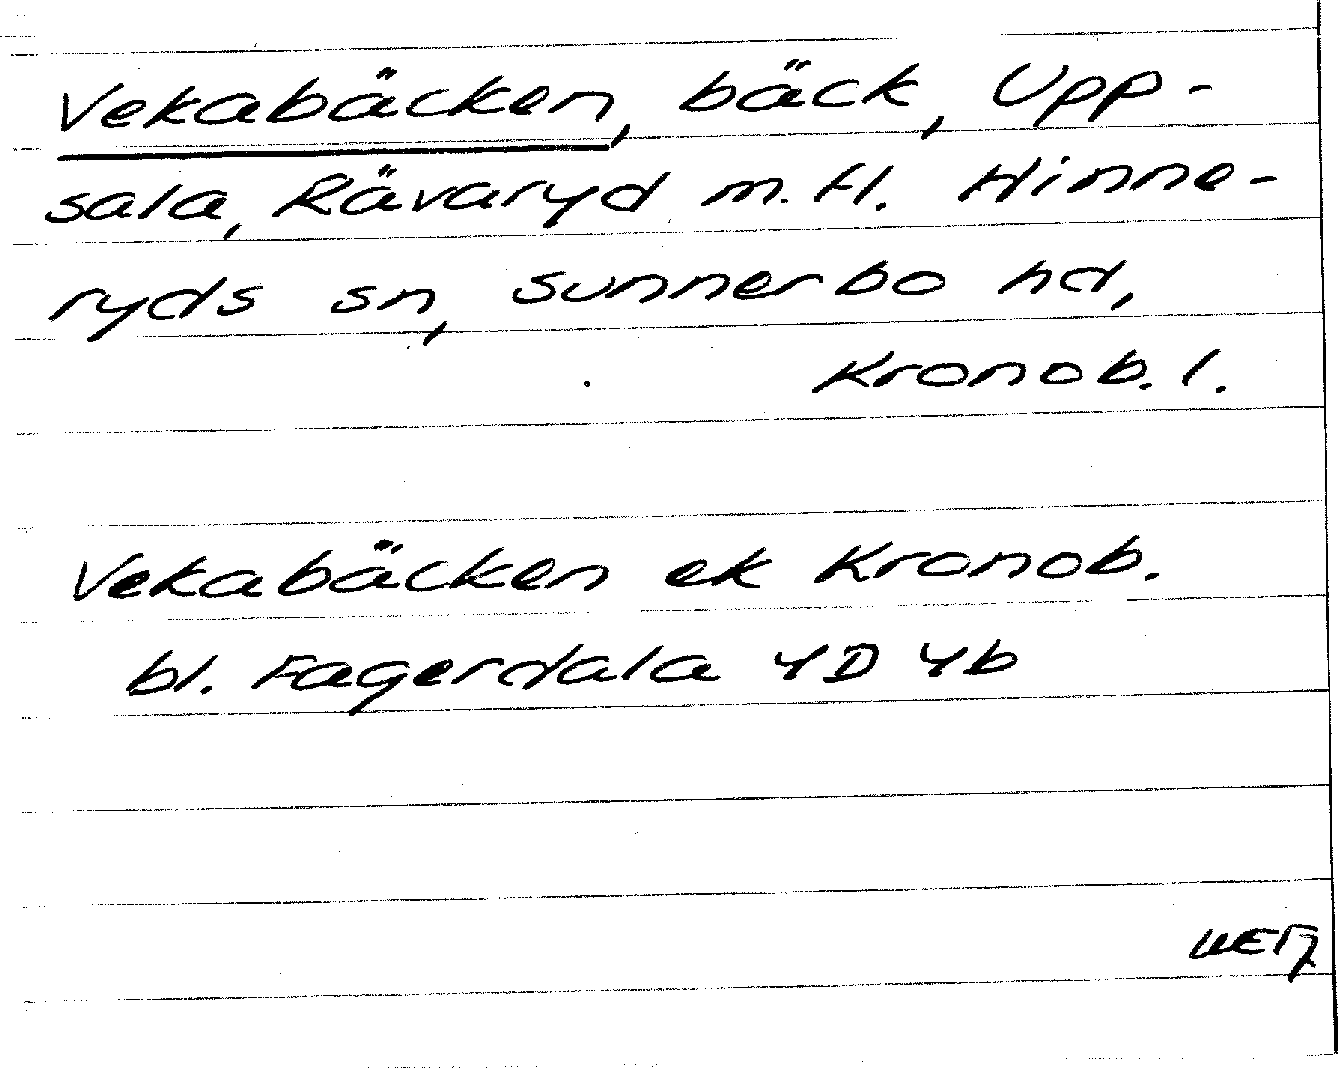 Vekabäcken, bäck, Upp-
sala, Rävaryd m.fl. Hinne-
ryds sn, Sunnerbo hd,
Kronob. l.
Vekabäcken ek Kronob.
bl. Fagerdala 4D 4b